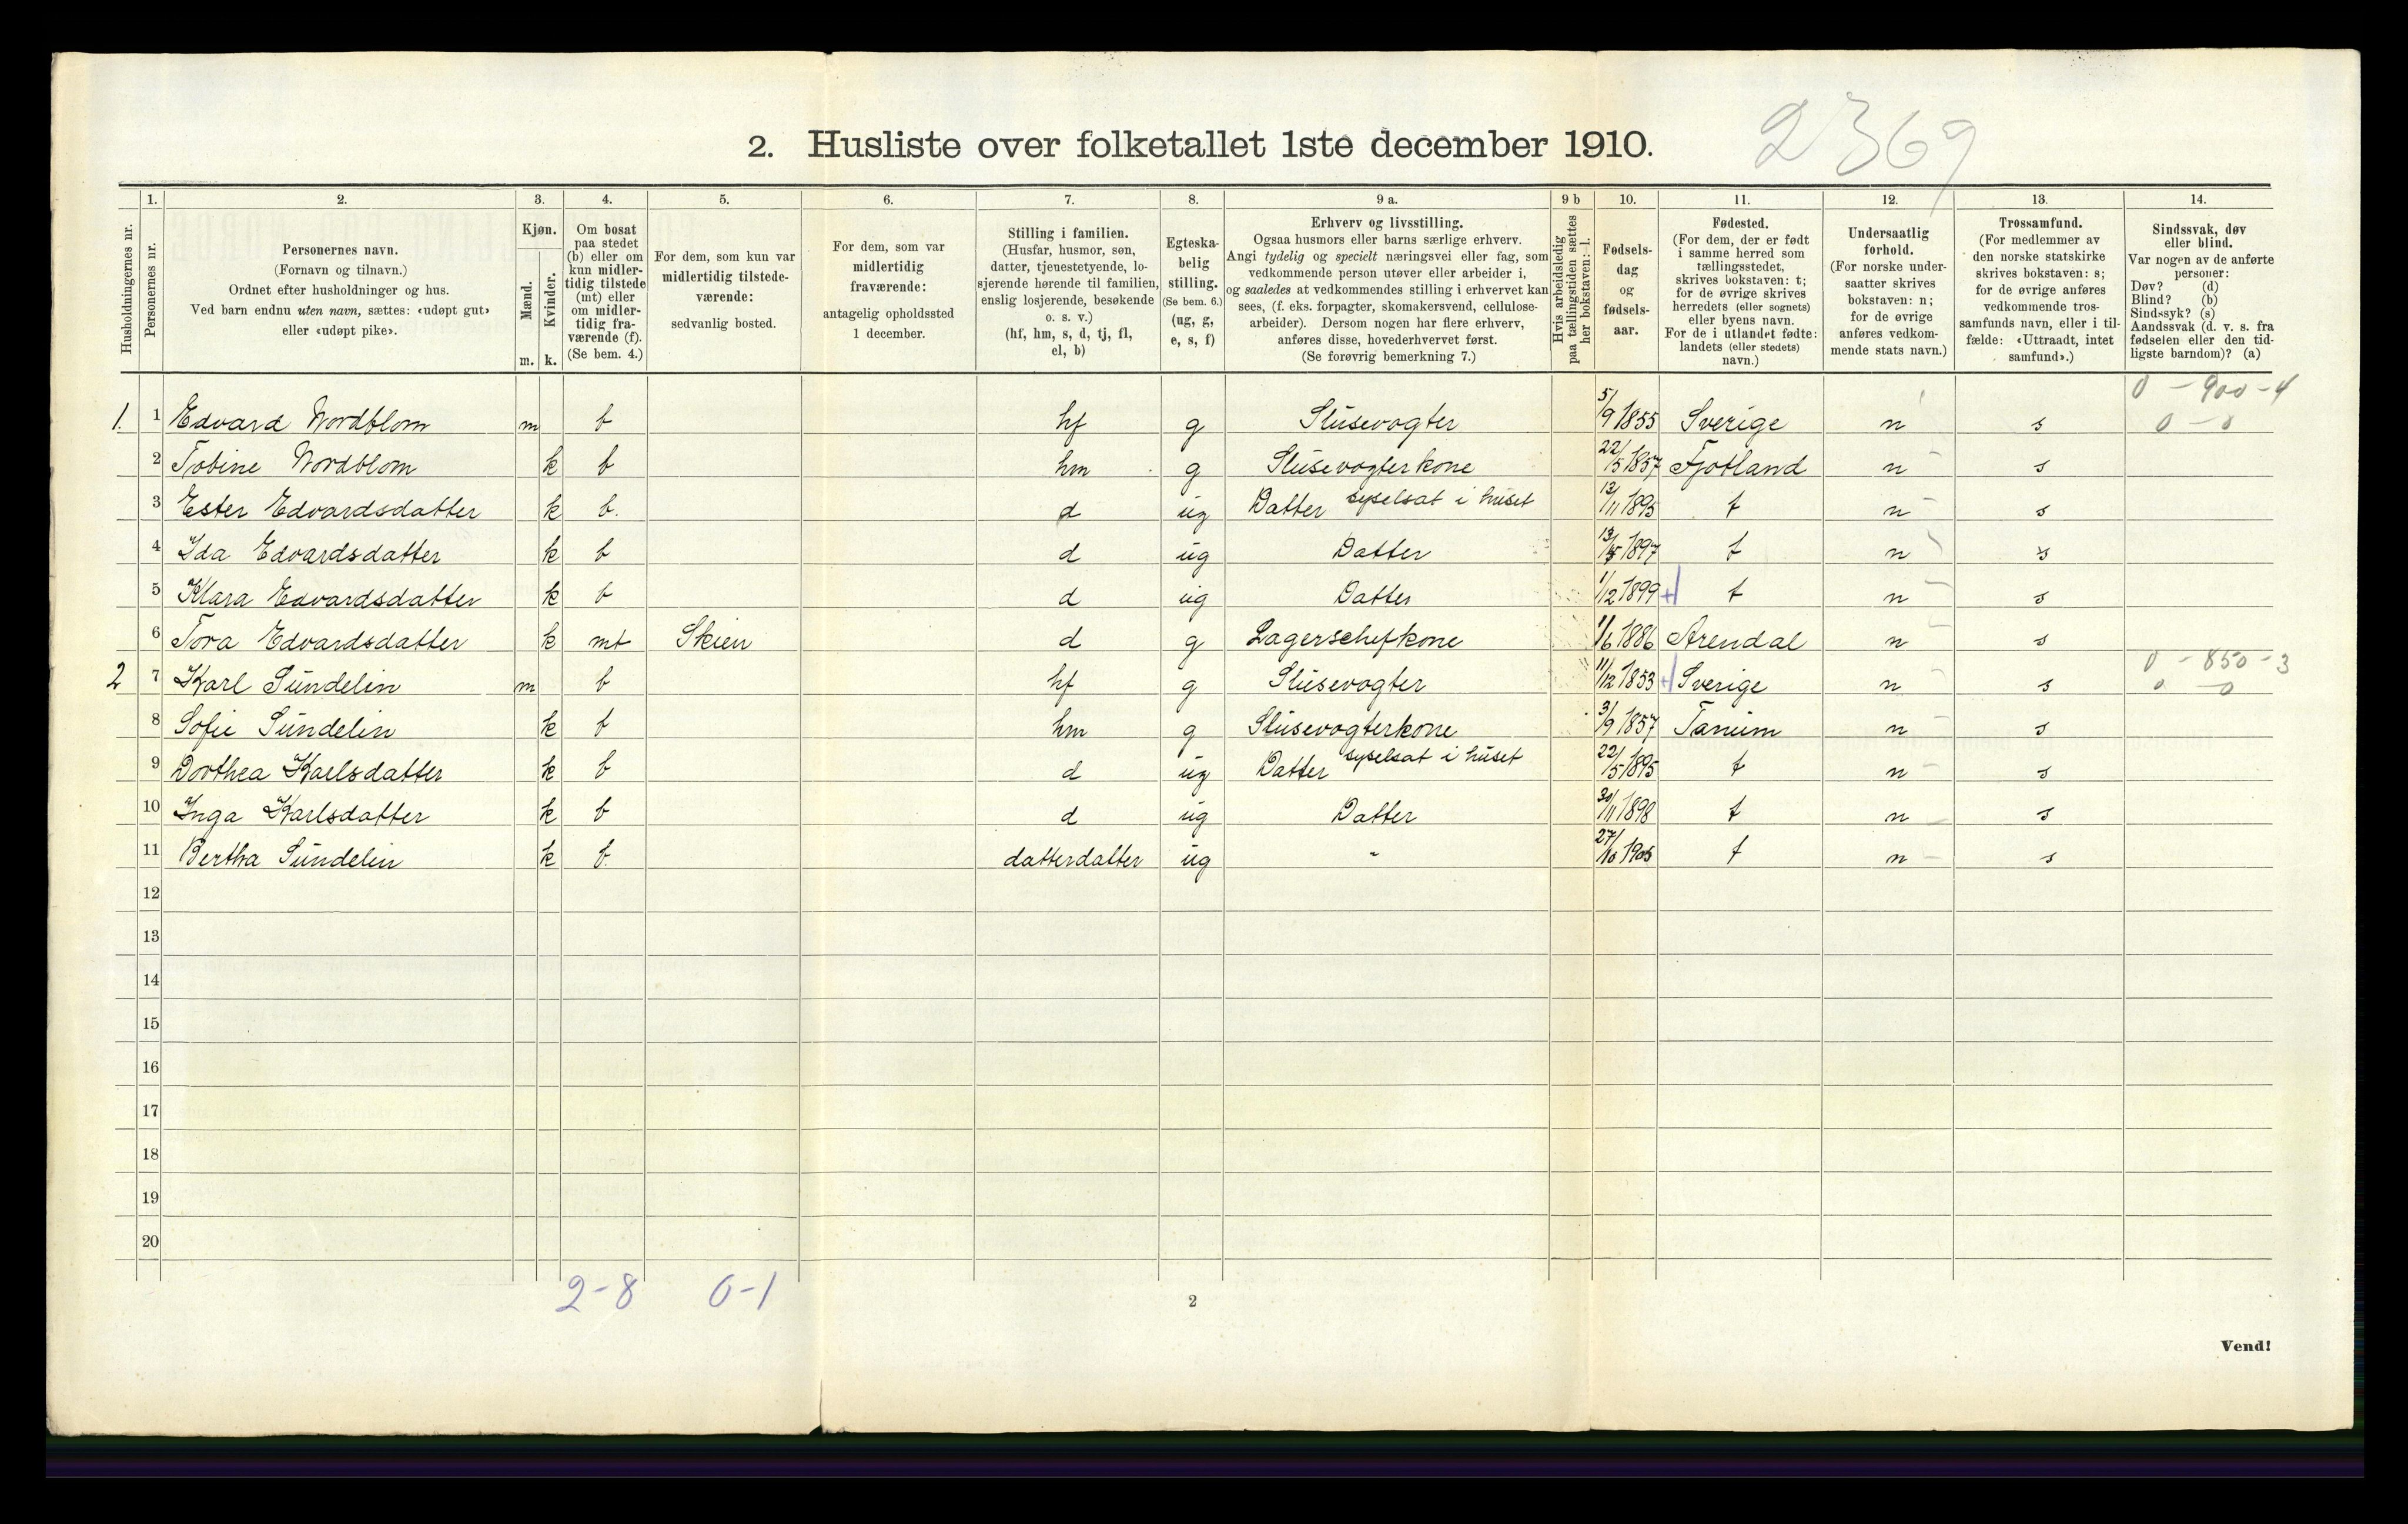 2. Husliste over folketallet 1ste december 1910.
2369
1. 2. 3. 4. 5. 6. 7. 8. 9 a. 9 b 10. 11. 12. 13. 14.
Husholdningernes nr.
Personernes nr.
Personernes navn.
(Fornavn og tilnavn.)
Ordnet efter husholdninger og hus.
Ved barn endnu uten navn, sættes: «udøpt gut»
eller «udøpt pike».
Kjøn.
Mænd.
Kvinder.
m. k.
Om bosat
paa stedet
(b) eller om
kun midler-
tidig tilstede
(mt) eller
om midler-
tidig fra-
værende (f).
(Se bem. 4.)
For dem, som kun var
midlertidig tilstede-
værende:
sedvanlig bosted.
For dem, som var
midlertidig
fraværende:
antagelig opholdssted
1 december.
Stilling i familien.
(Husfar, husmor, søn,
datter, tjenestetyende, lo-
sjerende hørende til familien,
enslig losjerende, besøkende
o. s. v.)
(hf, hm, s, d, tj, fl,
el, b)
Egteska-
belig
stilling.
(Se bem. 6.)
(ug, g,
e, s, f)
Erhverv og livsstilling.
Ogsaa husmors eller barns særlige erhverv.
Angi tydelig og specielt næringsvei eller fag, som
vedkommende person utøver eller arbeider i,
og saaledes at vedkommendes stilling i erhvervet kan
sees, (f. eks. forpagter, skomakersvend, cellulose-
arbeider). Dersom nogen har flere erhverv,
anføres disse, hovederhvervet først.
(Se forøvrig bemerkning 7.)
Hvis arbeidsledig
paa tællingstiden sættes
her bokstaven: l.
Fødsels-
dag
og
fødsels-
aar.
Fødested.
(For dem, der er født
i samme herred som
tællingsstedet,
skrives bokstaven: t;
for de øvrige skrives
herredets (eller sognets)
eller byens navn.
For de i utlandet fødte:
landets (eller stedets)
navn.)
Undersaatlig
forhold.
(For norske under-
saatter skrives
bokstaven: n;
for de øvrige
anføres vedkom-
mende stats navn.)
Trossamfund.
(For medlemmer av
den norske statskirke
skrives bokstaven: s;
for de øvrige anføres
vedkommende tros-
samfunds navn, eller i til-
fælde: «Uttraadt, intet
samfund».)
Sindssvak, døv
eller blind.
Var nogen av de anførte
personer:
Døv? (d)
Blind? (b)
Sindssyk? (s)
Aandssvak (d. v. s. fra
fødselen eller den tid-
ligste barndom)? (a)
0 - 900 - 4
1. 1 Edvard Nordblom m b hf g Slusevogter 5/9 1855 Sverige n s 0 - 0
2 Tobine Nordblom k b hm g Slusevogterkone 22/5 1857 Fjotland n s
3 Ester Edvardsdatter k b. d ug Datter syselsat i huset 13/11 1895 t n s
4 Ida Edvardsdatter k b d ug Datter 13/5 1897 t n s
5 Klara Edvardsdatter k b d ug Datter 1/12 1899 + t n s
6 Tora Edvardsdatter k mt Skien d g Lagerschefkone 1/6 1886 Arendal n s
0 - 850 - 3
2 7 Karl Sundelin m b hf g Slusevogter 11/12 1853 + Sverige n s 0 - 0
8 Sofie Sundelin k b hm g Slusevogterkone 3/9 1857 Tanum n s
9 Dorthea Karlsdatter k b d ug Datter syselsat i huset 22/5 1895 t n s
10 Inga Karlsdatter k b d ug Datter 30/11 1898 t n s
11 Bertha Sundelin k b. datterdatter ug " 27/10 1905 t n s
12
13
14
15
16
17
18
19
20
2-8 0-1
2
Vend!